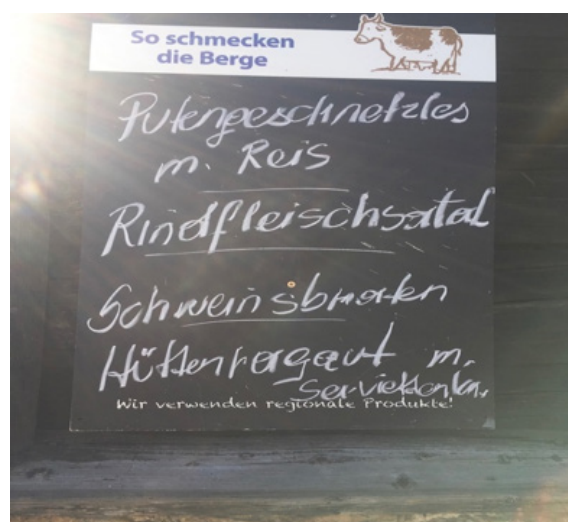 So schmecken
die Berge
Putengeschnetzles
m. Reis
Rindfleischsalat
Schweinsbraten
Hüttenragout m.
Serviettenkn.
Wir verwenden regionale Produkte!